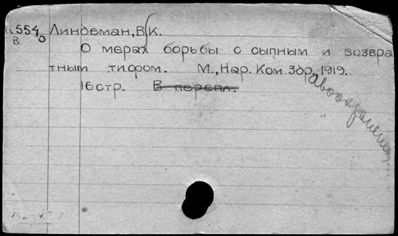 554 Линдеман, В. К.
В.
О мерах борьбы с сыпным и возвра
тным тифом. М., Нар. Ком. Здр. 1919.
16 стр. В перепл.